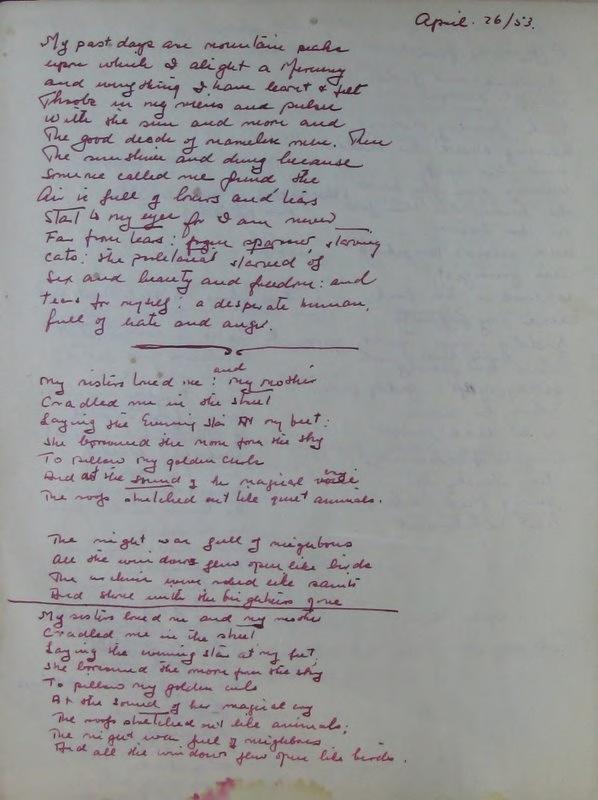 April. 26/53.
My past days are mountain peaks
upon which I alight a Mercury
and everything I have learnt & felt
Throbs in my veins and pulses
With the sun and moon and
The good deeds of nameless men. Then
The sunshine and dung because
Someone called me friend the
Air is full of briars and tears
Start to my eyes for I am never
Far from tears: sparrows, starving
cats: the proletariat starved of
Sex and beauty and freedom: and
tears for myself: a desperate human,
full of hate and anger.
and
My sisters loved me: my mother
Cradled me in the street
Laying the Evening Star at my feet:
She borrowed the moon from the sky
To pillow my golden curls
And at the sound of her magical cry
The roofs stretched out like quiet animals.
The night was full of neighbours
All the windows flew open like birds
The urchins were robed like saints
And shone with the brightness
My sisters loved me and my mother
Cradled me in the street
Laying the evening star at my feet,
She borrowed the moon from the sky
To pillow my golden curls
At the sound of her magical cry
The roofs stretched out like animals;
The night was full of neighbours
And all the windows flew open like birds.